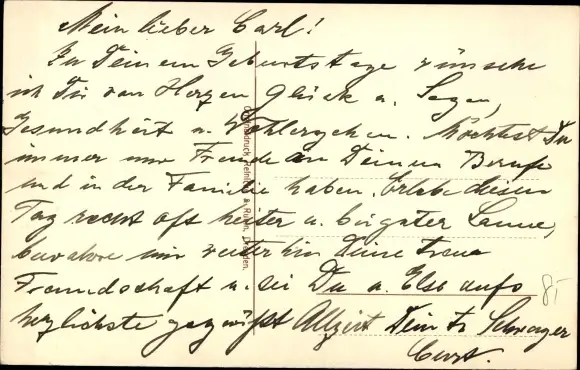 Mein lieber Carl!
Zu Deinem Geburtstage wünsche
ich Dir von Herzen Glück u. Segen,
Gesundheit u. Wohlergehen. Möchtest Du
immer nur Freude an Deinem Berufe
und in der Familie haben. Erlebe diesen
Tag recht oft heiter u. bei guter Laune,
bewahre mir weiterhin Deine treue
Freundschaft u. sei Du u. Else aufs
herzlichste gegrüßt Allzeit Dein tr. Schwager
Curt.
8/-